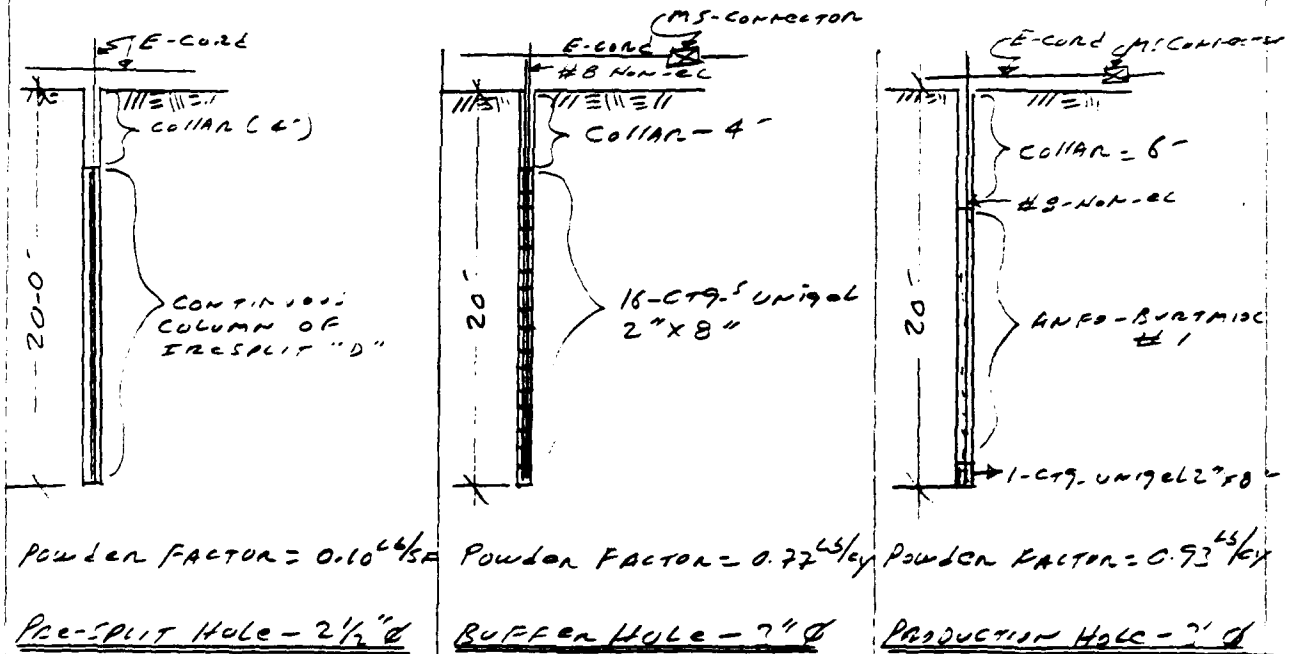 E-CORD
COLLAR (4')
20-0"
CONTINUOUS
COLUMN OF
IRESPLIT "D"
POWDER FACTOR = 0.10 LB/SF
PRE-SPLIT HOLE - 2 1/2" Ø
MS-CONNECTOR
E-CORD
#8 NON-EL
COLLAR - 4'
20'
16-CTG.S UNIGEL
2" X 8"
POWDER FACTOR = 0.77 LB/CY
BUFFER HOLE - 3" Ø
E-CORD
MS CONNECTOR
COLLAR = 6'
#8-NON-EL
20'
ANFO-BURTMIDC
#1
1-CTG. UNIGEL 2" X 8"
POWDER FACTOR = 0.93 LB/CY
PRODUCTION HOLE - 3" Ø